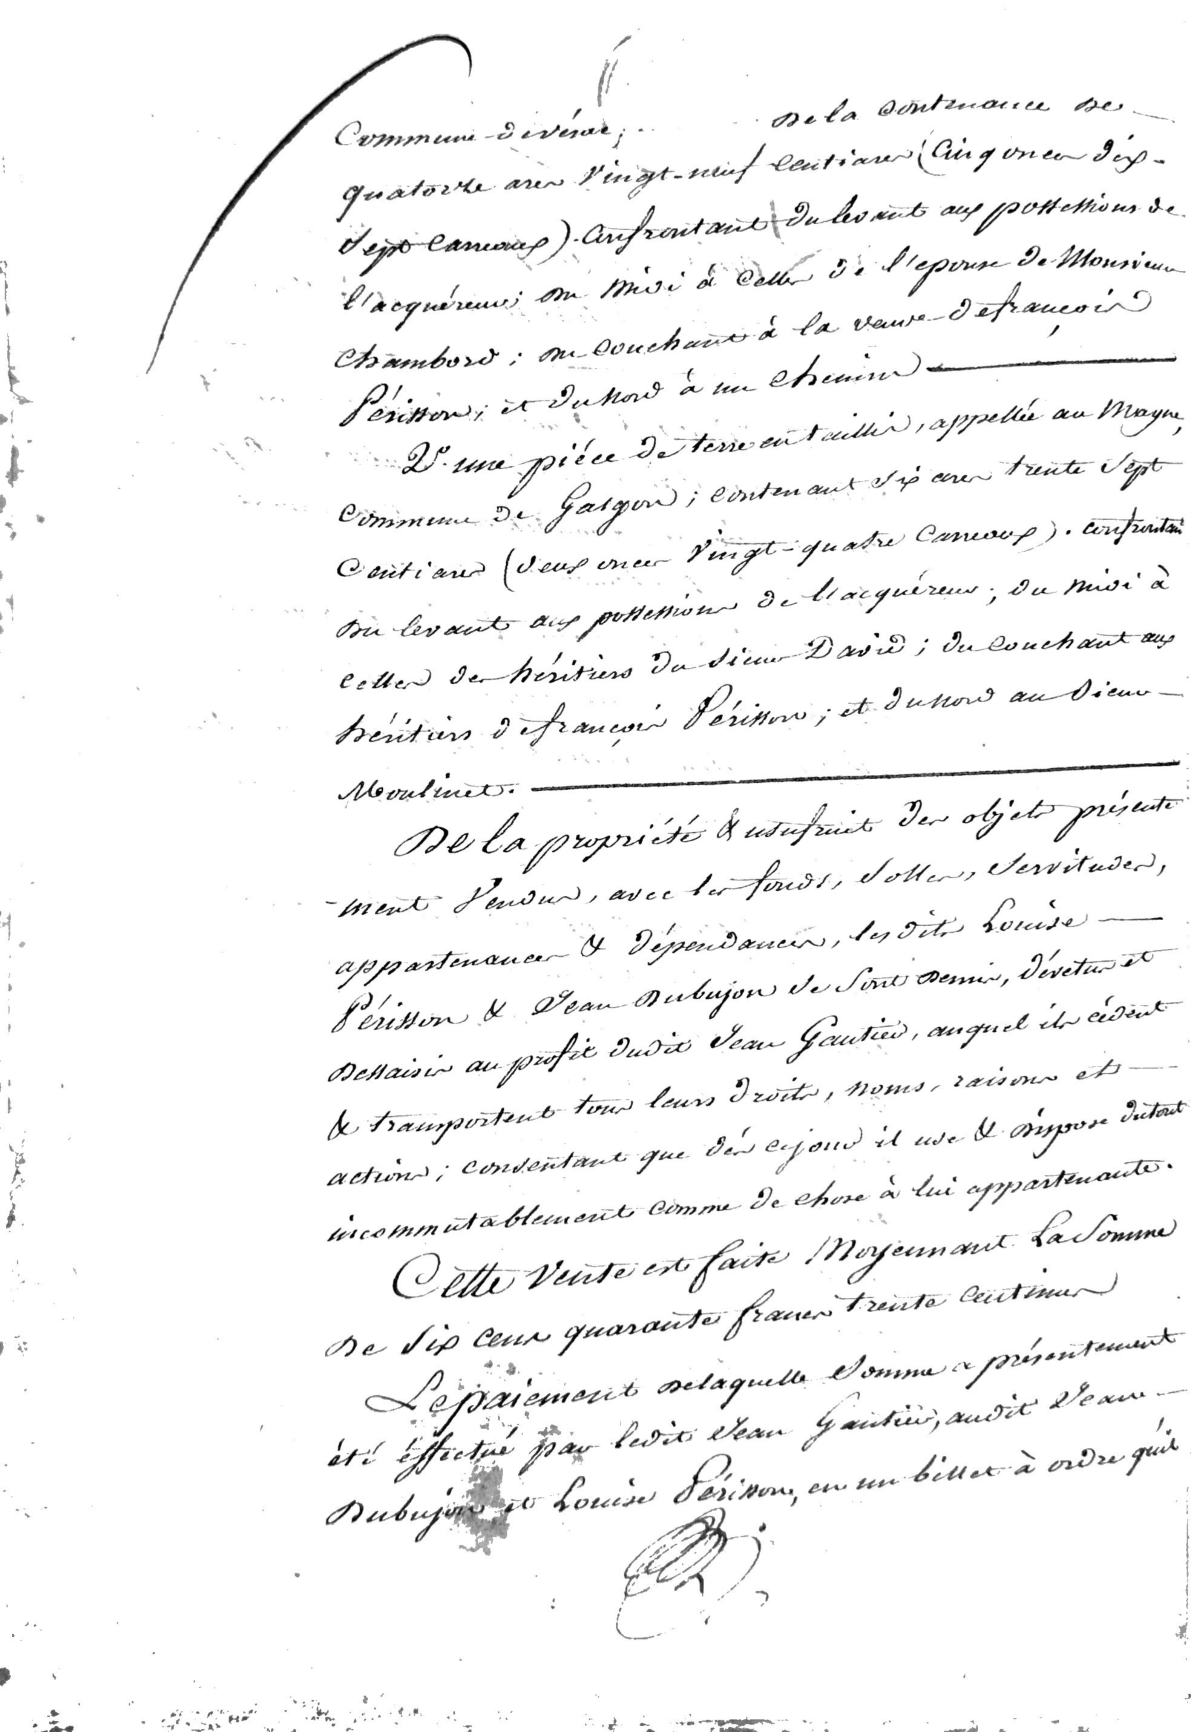 Commune de vérac; de la contenance de
quatorze ares vingt-neuf centiares (cinq onces dix-
sept carreaux). Confrontant du levant aux possessions de
l'acquéreur; du midi à celles de l'epouse de Monsieur
Chambord; du couchant à la veuve de françois
Périsson; et du nord à un chemin
2°. une piéce de terre en taillis, appellée au Mayne,
commune de Galgon; contenant six ares trente sept
centiares (deux onces vingt-quatre carreaux). confrontant
du levant aux possessions de l'acquéreur; du midi à
celles des héritiers du sieur David; du couchant aux
héritiers de françois Périsson; et du nord au sieur
Moulinet.
De la propriété & usufruit des objets présente
-ment vendus, avec les fonds, servitudes,
appartenances & dépendances, lesdits Louise
Périsson & Jean Dubujon se sont demis, dévetus et
dessaisis au profit dudit Jean Gautier, auquel ils cédent
& transportent tous leurs droits, noms, raisons et
actions; consentant que dès cejour il use & dispose dutout
incommutablement comme de chose à lui appartenante.
Cette vente est faite Moyennant La Somme
De six cens quarante francs trente centimes
Le paiement delaquelle somme a présentement
été éffectué par ledit Jean Gautier, audit Jean
Dubujon et Louise Périsson, en un billet à ordre qu'il